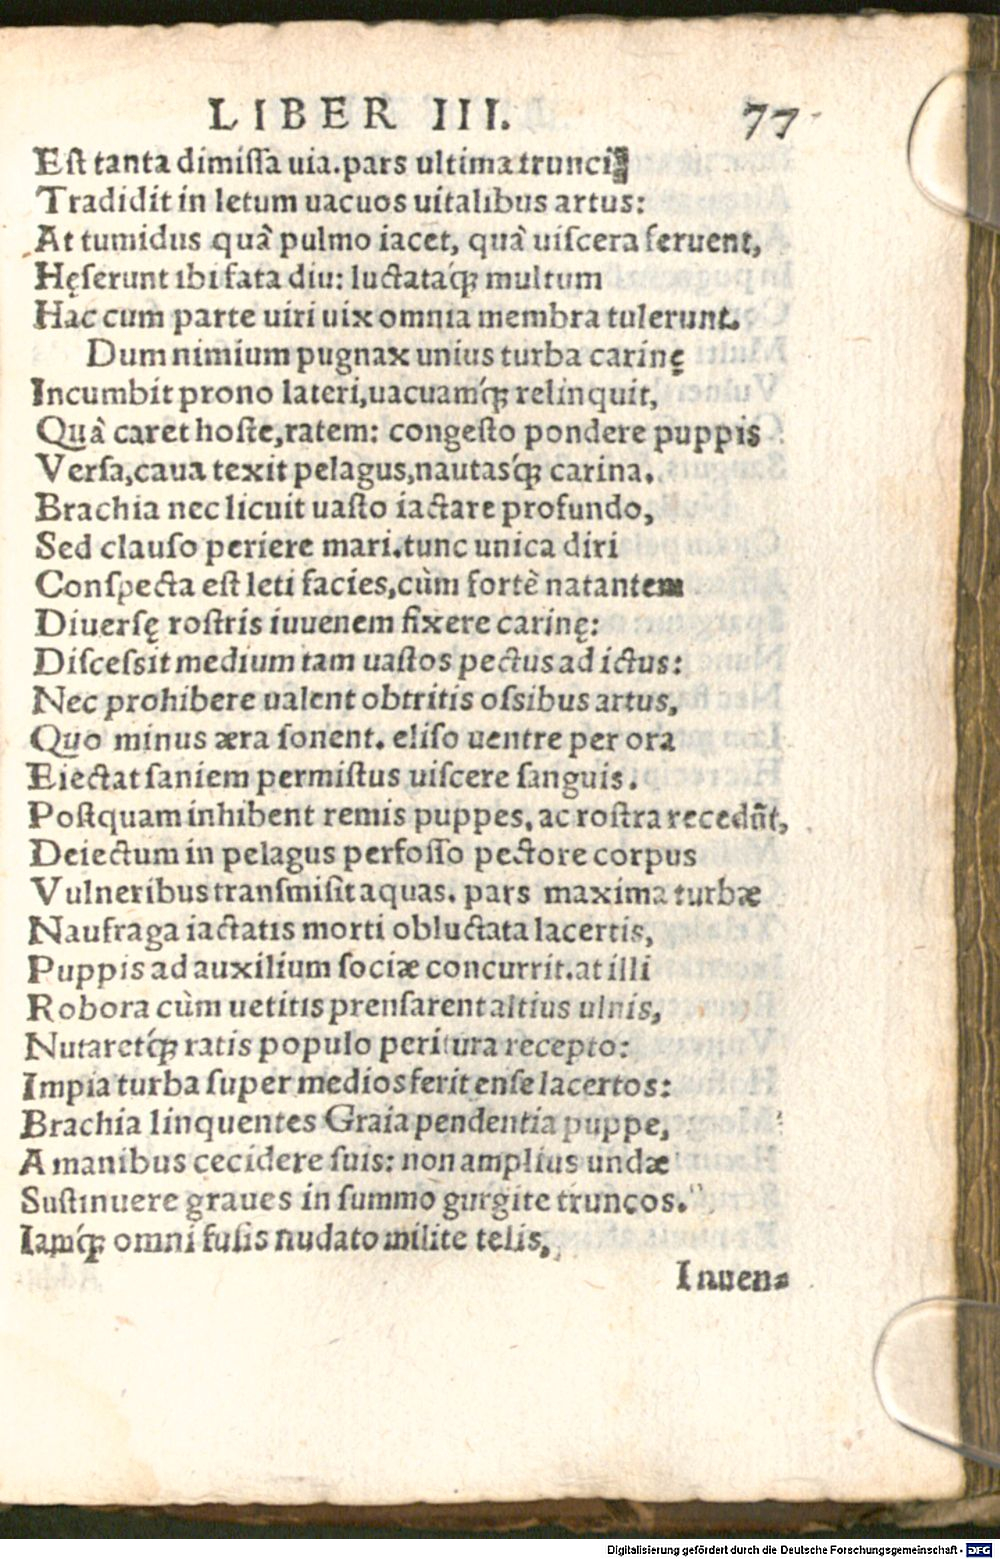 LIBER III. 77
Est tanta dimissa uia. pars ultima trunci
Tradidit in letum uacuos uitalibus artus:
At tumidus quâ pulmo iacet, quâ uiscera feruent,
Hęserunt ibi fata diu: luctataq́; multum
Hac cum parte uiri uix omnia membra tulerunt.
Dum nimium pugnax unius turba carinę
Incumbit prono lateri, uacuamq́; relinquit,
Quâ caret hoste, ratem: congesto pondere puppis
Versa, caua texit pelagus, nautasq́; carina.
Brachia nec licuit uasto iactare profundo,
Sed clauso periere mari. tunc unica diri
Conspecta est leti facies, cùm fortè natantem
Diuersę rostris iuuenem fixere carinę:
Discessit medium tam uastos pectus ad ictus:
Nec prohibere ualent obtritis ossibus artus,
Quo minus æra sonent. eliso uentre per ora
Eiectat saniem permistus uiscere sanguis.
Postquam inhibent remis puppes, ac rostra recedũt,
Deiectum in pelagus perfosso pectore corpus
Vulneribus transmisit aquas. pars maxima turbæ
Naufraga iactatis morti obluctata lacertis,
Puppis ad auxilium sociæ concurrit. at illi
Robora cùm uetitis prensarent altius ulnis,
Nutaretq́; ratis populo peritura recepto:
Impia turba super medios ferit ense lacertos:
Brachia linquentes Graia pendentia puppe,
A manibus cecidere suis: non amplius undæ
Sustinuere graues in summo gurgite truncos.
Iamq́; omni fusis nudato milite telis,
Inuen=
Digitalisierung gefördert durch die Deutsche Forschungsgemeinschaft - DFG